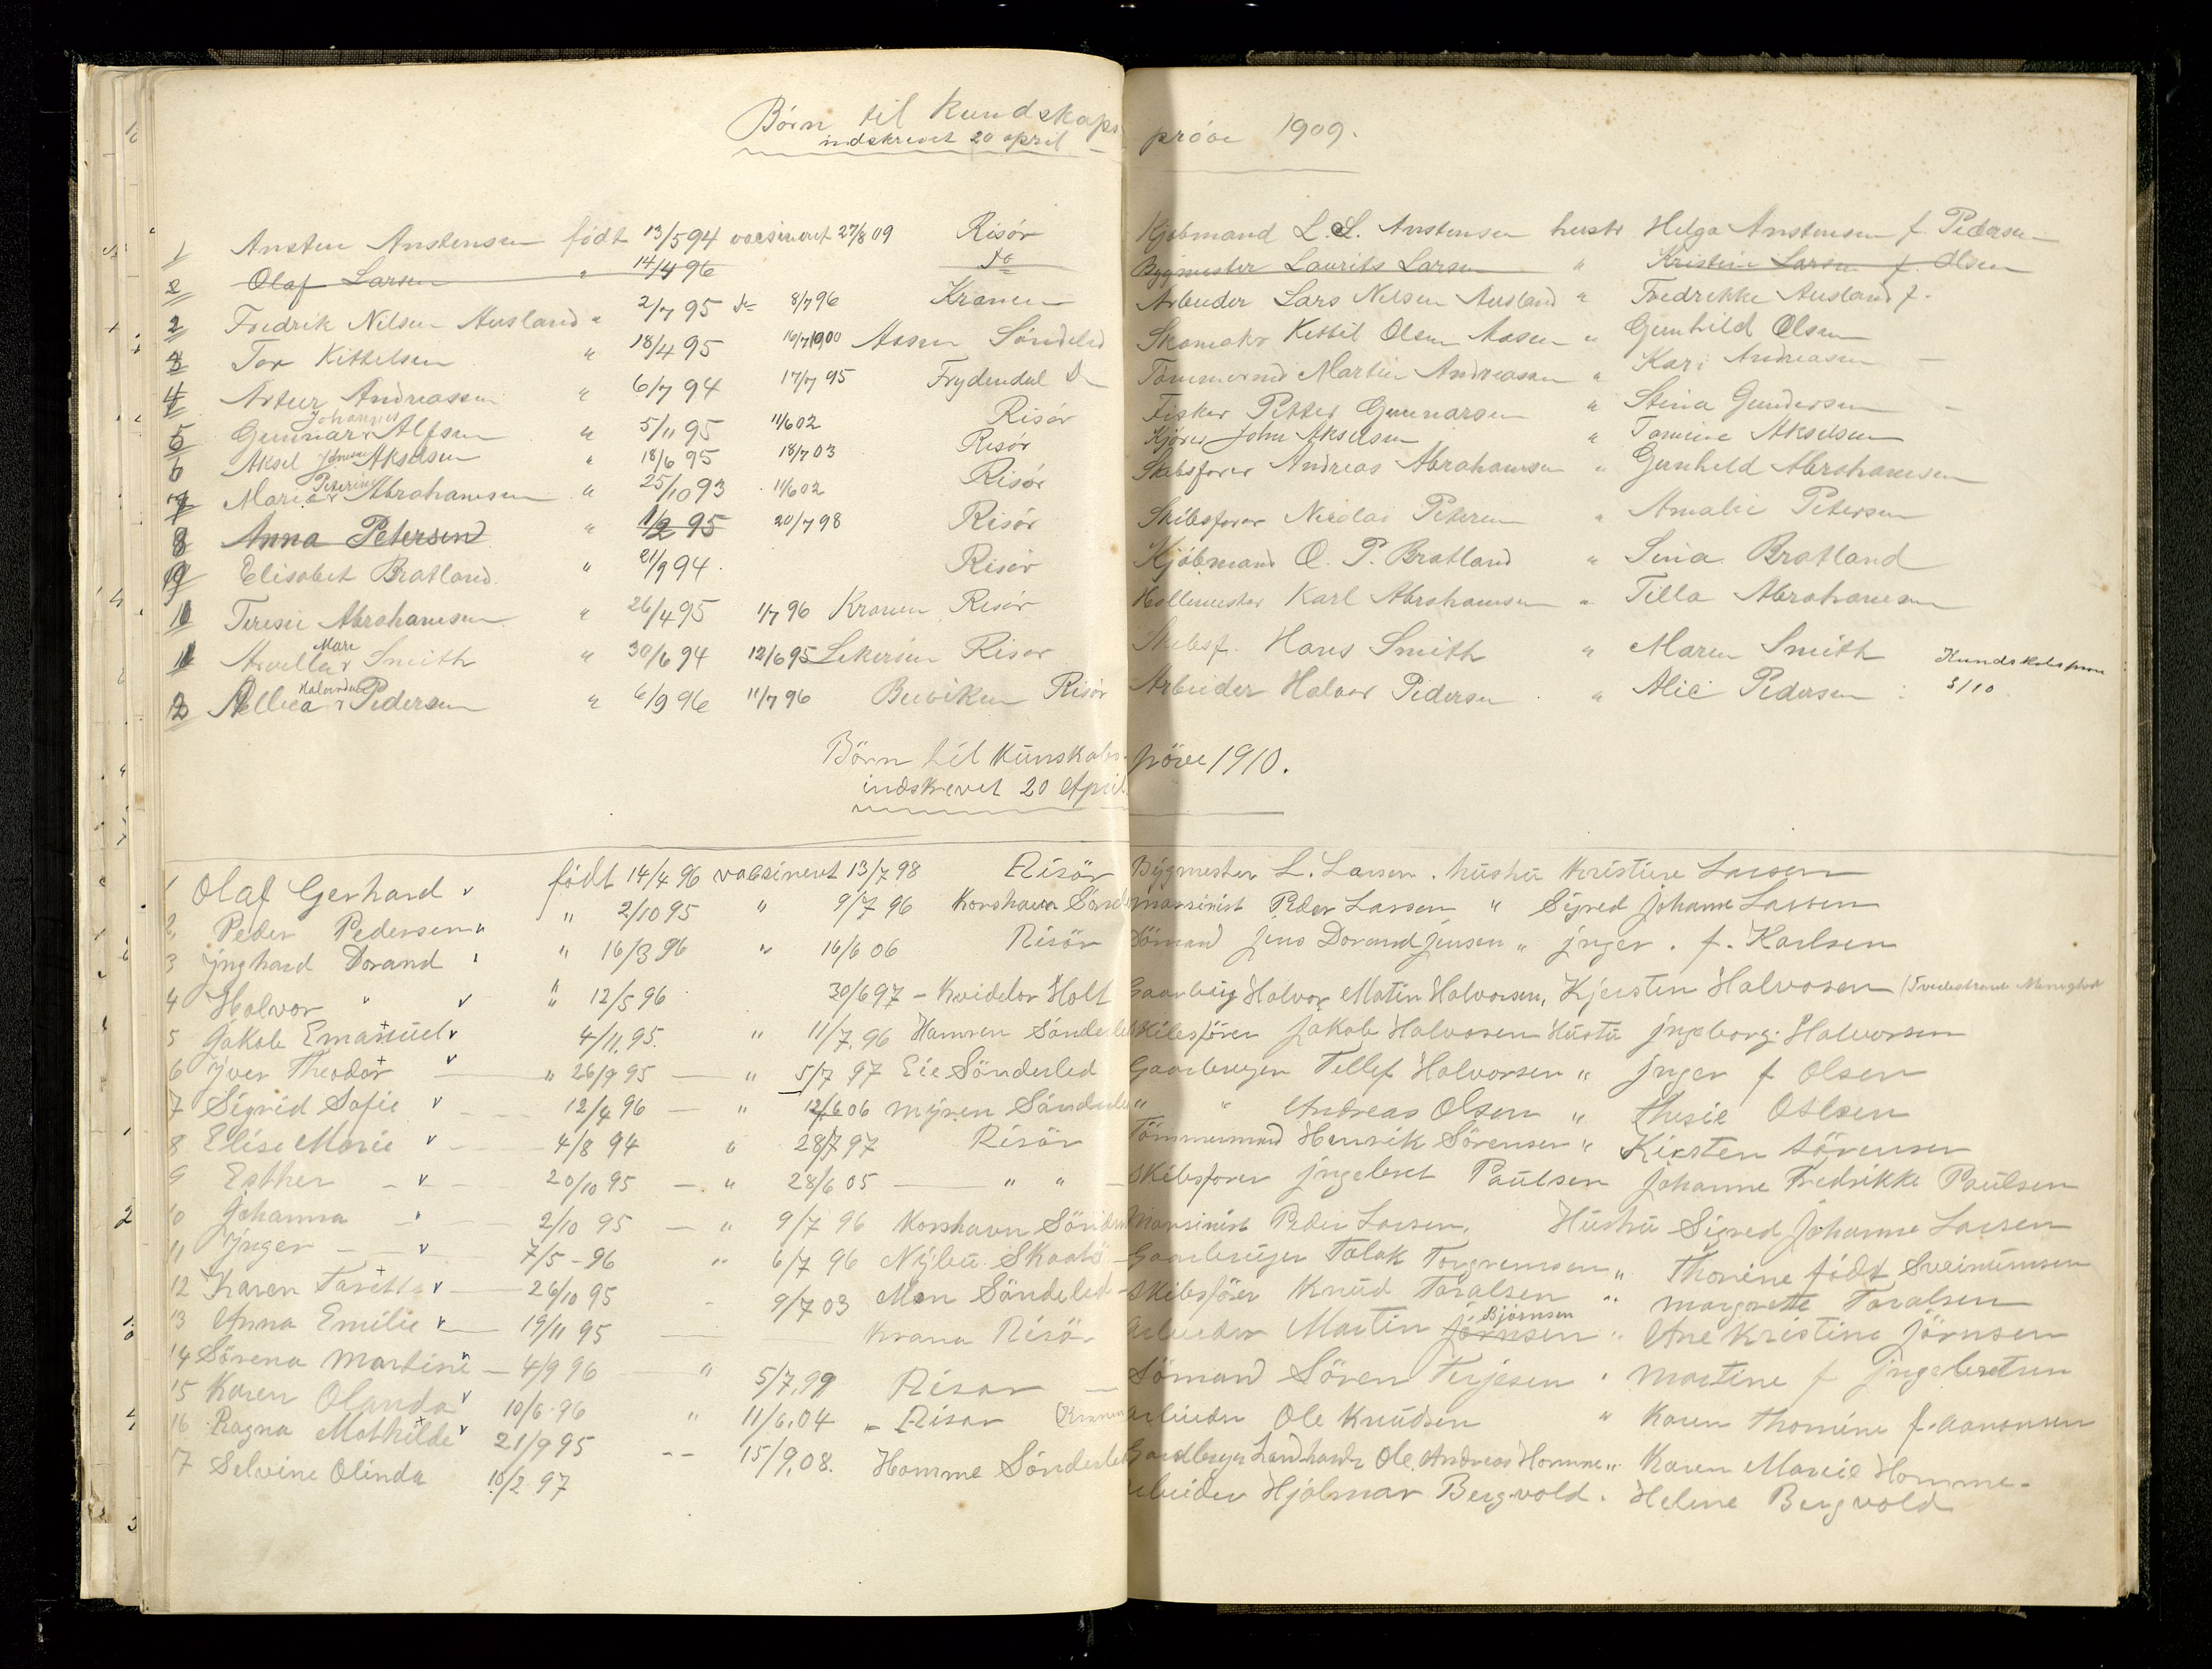 Børn til Kundskaps prøve 1909.
indskrevet 20 april
1 Ansten Anstensen født 13/5 94 vacsineret 27/8 09 Risør Kjøbmand L. L. Anstensen hustr Helga Anstensen f. Pedersen
2 Olaf Larsen " 14/4 96 do Bygmester Laurits Larsen " Kristine Larsen f. Olsen
2 Fredrik Nilsen Ausland " 2/7 95 do 8/7 96 Kranen Arbeider Lars Nilsen Ausland " Fredrikke Ausland f.
3 Tor Kittelsen " 18/4 95 16/7 1900 Aasen Søndeled Skomaker Kittil Olsen Aasen " Gunhild Olsen
4 Artur Andreassen " 6/7 94 17/7 95 Frydendal Tømmermd Martin Andreassen " Kari Andreasen
5 Gunnar Johannes Alfsen " 5/11 95 11/6 02 Risør Fisker Petter Gunnarsen " Stina Gundersen
6 Aksel Johan Akselsen " 18/6 95 18/7 03 Risør Kjører John Akselsen " Tomine Akselsen
7 Marie Peterine Abrahamsen " 25/10 93 11/6 02 Risør Skibsfører Andreas Abrahamsen " Gunhild Abrahamsen
8 Anna Petersen " 1/2 95 20/7 98 Risør Skibsfører Nicolai Petersen " Amalie Petersen
9 Elisabet Bratland " 21/9 94 Risør Kjøbmand O. P. Bratland " Sina Bratland
10 Teresie Abrahamsen " 26/4 95 1/7 96 Kranen Risør Karl Abrahamsen " Tilla Abrahamsen
11 Arvilla Mare Smith " 30/6 94 12/6 95 Risør Skibsf. Hans Smith " Maren Smith
Kundskabsprøve 3/10
12 Pedersen " 6/9 96 11/7 96 Buviken Risør Arbeider Halvor Pedersen " Alic Pedersen
Børn til Kunskabs- pröve 1910.
indskrevet 20 April
1 Olaf Gerhard v født 14/4 96 vacsineret 13/7 98 Risör Bygmester L. Larsen. hustru Kristine Larsen
2 Peder Pedersen v " 2/10 95 " 9/7 96 Korshavn Sönd Marsinist Peder Larsen " Sigred Johanne Larsen
3 Jnghard Dorand " 16/3 96 " 16/6 06 Risör Sömand Jens Dorand Jensen " Jnger. f. Karlsen
4 Halvor " v " 12/5 96 30/6 97 - Kvidelor Holt Gaarbrug Halvor Matin Halvorsen, Kjersten Halvosen (Tvedestrand Menighed
5 Jakob Emanuel v 4/11, 95. " 11/7. 96 Hamren Sönderled Skibsfören Jakob Halvosen Hustru Jngeborg Halvorsen
6 Jver Theodor v " 26/9 95 " 5/7 97 Eie Sönderled Gaarbruger Tellef Halvorsen " Jnger f Olsen
7 Sigrid Sofie v 12/4 96 " 12/6 06 Myren Sönderle " " Andreas Olsen " Thesie Oslsen
8 Elise Marie v 4/8 94 " 28/7 97 Risör Tömmermand Henrik Sörensen " Kirsten Sörensen
9 Esther v 20/10 95 " 28/6 05 " " Skibsfører Jngebret Paulsen Johanne Fredrikke Paulsen
10 Johanna v 2/10 95 " 9/7 96 Korshavn Sönder Marsinist Peder Larsen, Hustru Sigred Johanne Larsen
11 Jnger v 7/5 - 96 " 6/7 96 Nybu Skaatö Gaarbruger Talak Torgrimsen " Thorine født Sveinumsen
12 Karen Taretta v 26/10 95 9/7 03 Moen Sönderled Skibsförer Knud Taralsen " Margrette Taralsen
13 Anna Emilie v 19/11 95 Krana Risör Arbeider Martin Jörnsen Bjørnsen " Ane Kristine Jörnsen
14 Sörena Martine v 4/9 96 " 5/7. 99 Risør Sömand Sören Terjesen " Martine f Jngebretsen
15 Karen Olanda v 10/6 - 96 " 11/6. 04 Risør (Kranen Arbeider Ole Knudsen " Karen Thomine f. Aanonsen
16 Ragna Mathilde v 21/9 95 15/9. 08. Homme Sönderled Gaardbruger Landhandr Ole Andreas Homme " Karen Marie Homme.
17 Selvine Olinda 10/2 97 Arbeider Hjalmar Bergvold. Helene Bergvold